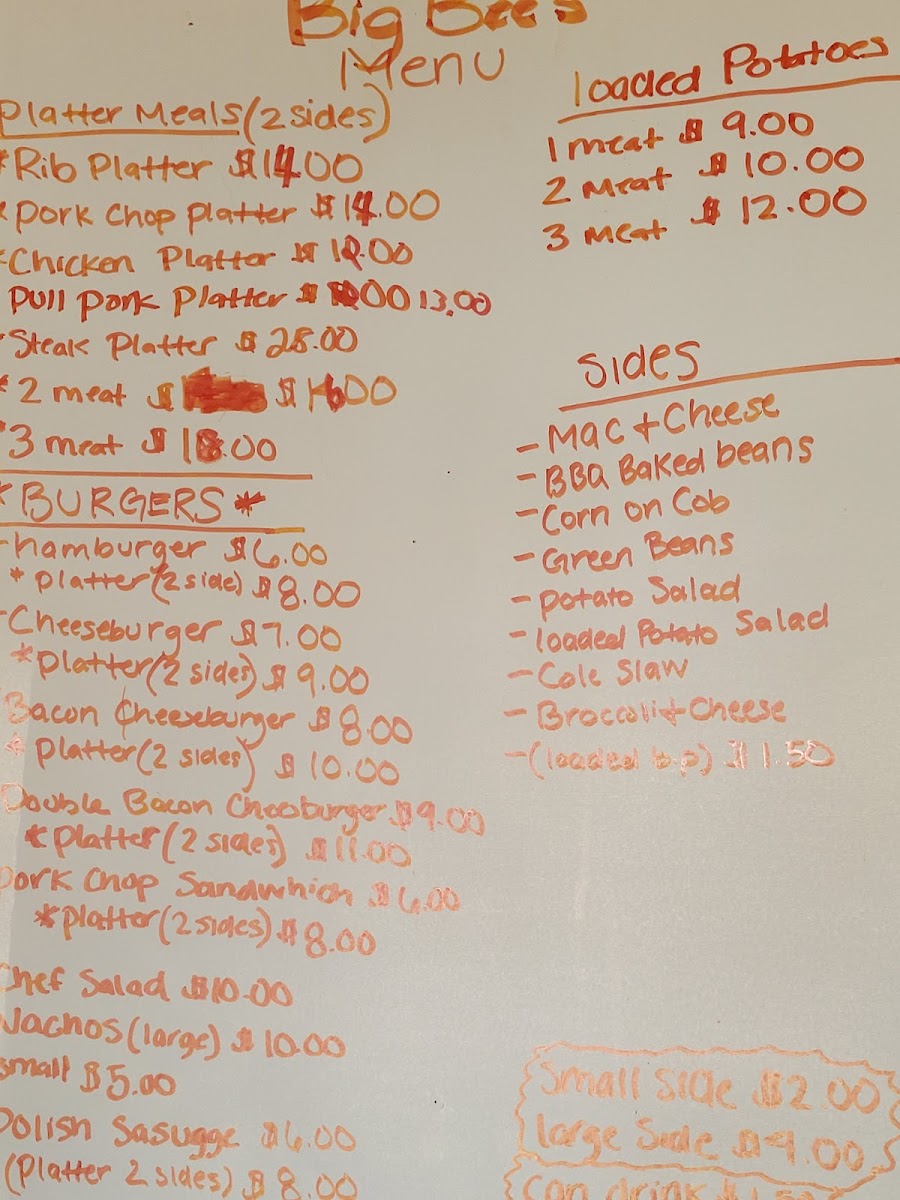 Big Bee's
Menu
Platter Meals (2 sides)
*Rib Platter $14.00
*Pork Chop platter $14.00
*Chicken Platter $12.00
Pull pork Platter $ 00 13.00
*Steak Platter $25.00
*2 meat $ $16.00
*3 meat $18.00
*BURGERS*
-hamburger $6.00
*platter (2 side) $8.00
-Cheeseburger $7.00
*platter (2 sides) $9.00
Bacon Cheeseburger $8.00
*Platter (2 sides) $10.00
Double Bacon Cheesburger $9.00
*platter (2 sides) $11.00
Pork Chop Sandwhich $6.00
*platter (2 sides) $8.00
Chef Salad $10.00
Nachos (large) $10.00
small $5.00
Polish Sasugge $6.00
(Platter 2 sides) $8.00
loaded Potatoes
1 meat $9.00
2 meat $10.00
3 meat $12.00
Sides
-Mac + Cheese
-BBQ Baked beans
-Corn on Cob
-Green Beans
-potato Salad
-loaded Potato Salad
-Cole Slaw
-Broccoli + Cheese
-(loaded b.p) $1.50
Small Side $2.00
large Side $4.00
Can drink $